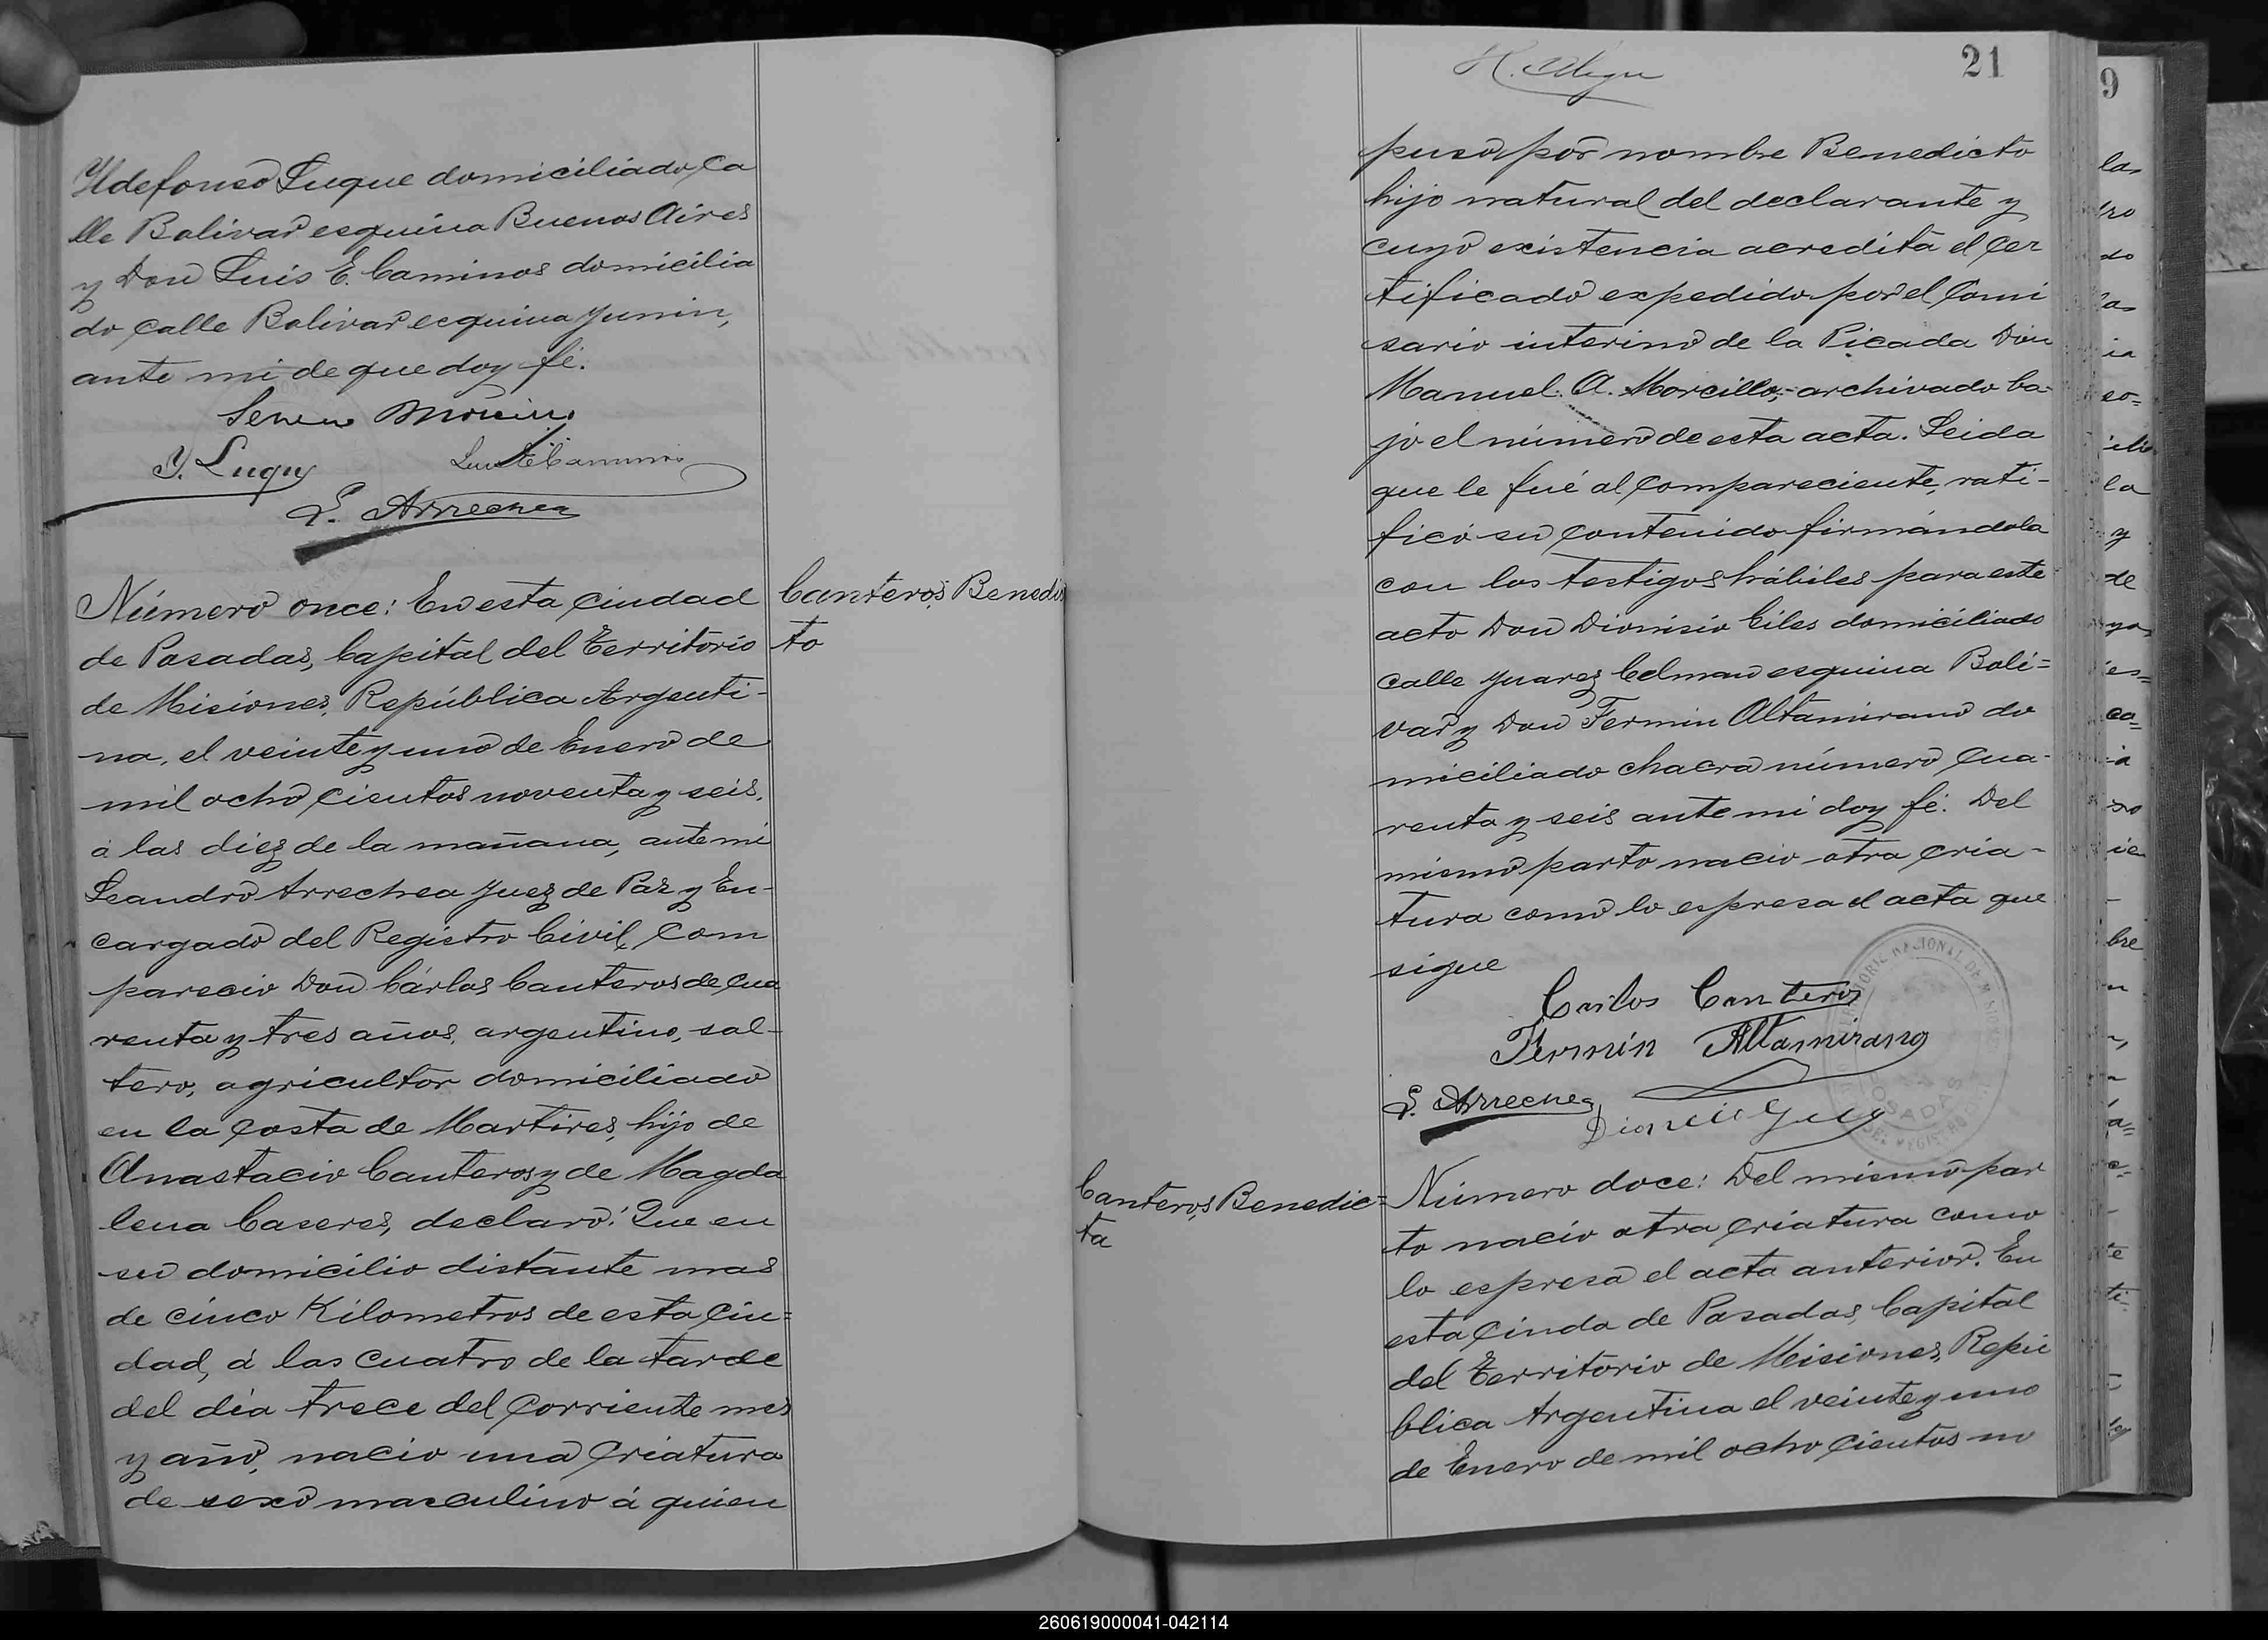 Yldefonso Luque domiciliado ca
lle Bolivar esquina Buenos Aires
y Don Luis E. Caminos domicilia
do calle Bolivar esquina Junin,
ante mi de que doy fé.
Y. Luque
Luis E. Caminos
L. Arrechea
Número once: En esta ciudad
de Posadas, Capital del Territorio
de Misiones, República Argenti-
na, el veinte y uno de Enero de
mil ocho cientos noventa y seis,
á las diez de la mañana, ante mi
Leandro Arrechea Juez de Paz y En-
cargado del Registro Civil, com
pareció Don Cárlos Canteros de cua
renta y tres años, argentino, sol-
tero, agricultor domiciliado
en la costa de Martires, hijo de
Anastacio Canteros y de Magda
lena Caseres, declaró: Que en
su domicilio distante mas
de cinco Kilometros de esta Ciu=
dad, á las cuatro de la tarde
del dia trece del corriente mes
y año, nacio una criatura
de sexo masculino á quien
Canteros, Benedic
to
21
puso por nombre Benedicto
hijo natural del declarante y
cuyo existencia acredita el cer
tificado expedido por el Comi
sario interino de la Picada Don
Manuel A. Morcillo,= archivado ba-
jo el número de esta acta. Leida
que le fué al compareciente, rati-
ficó su contenido firmándola
con los testigos hábiles para este
acto Don Dionisio Giles domiciliado
calle Juarez Celman esquina Boli=
var y Don Fermin Altamirano do
miciliado chacra número cua-
renta y seis ante mi doy fé. Del
mismo parto nacio otra cria-
tura como lo espresa el acta que
sigue
Carlos Canteros
Fermín Altamirano
L. Arrechea
Canteros, Benedic=
ta
Número doce: Del mismo par
to nacio otra criatura como
lo espresa el acta anterior. En
esta Ciuda de Posadas, Capital
del Territorio de Misiones, Repú
blica Argentina el veinte y uno
de Enero de mil ocho cientos no
9
260619000041-042114